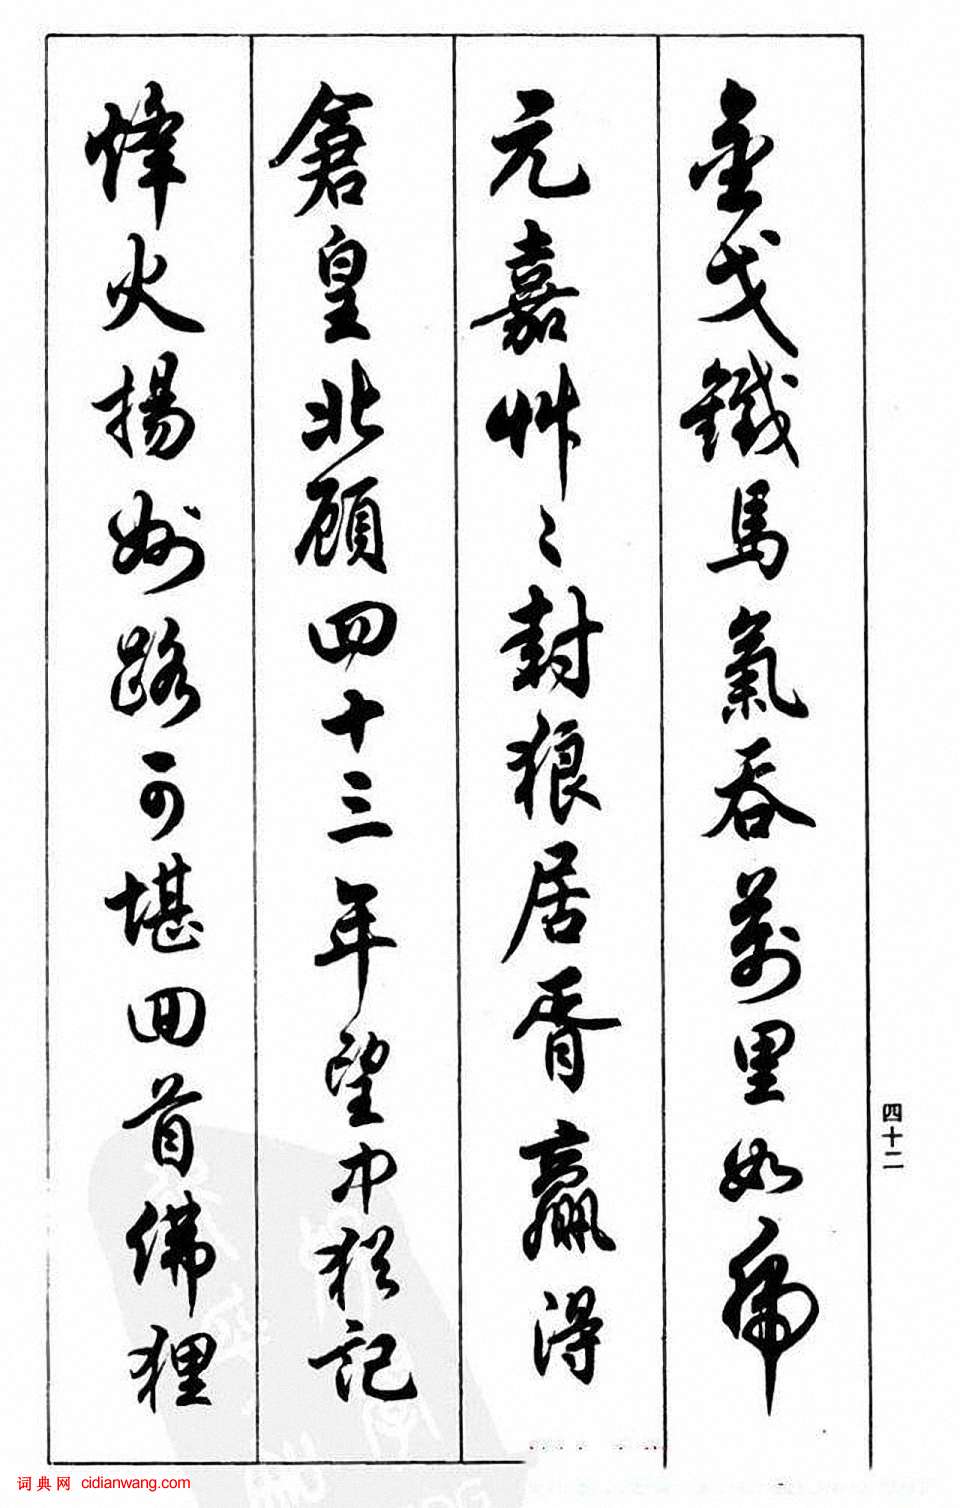 金戈鐵馬氣吞萬里如虎
元嘉艸〻封狼居胥贏得
倉皇北顧四十三年望中猶記
烽火揚州路可堪回首佛狸
四十二
词典网 cidianwang.com